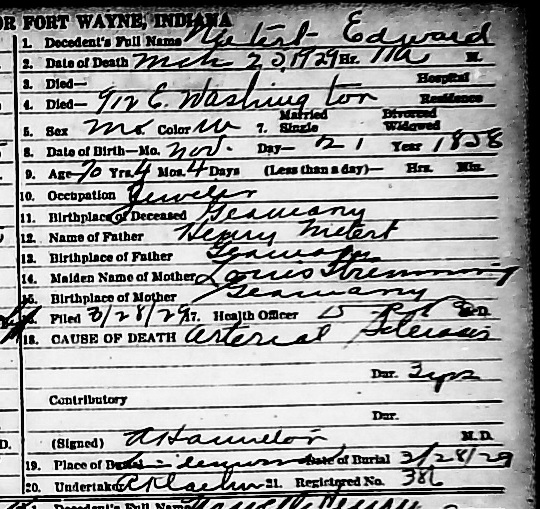 OR FORT WAYNE, INDIANA
1. Decedent's Full Name Edward
2. Date of Death Mch 25, 1929 Hr. 11 A M.
3. Died— Hospital
4. Died— 912 E. Washington Residence
5. Sex M. Color W 7. Married Single Divorced Widowed
8. Date of Birth—Mo. Nov. Day— 21 Year 1858
9. Age 70 Yrs. 4 Mos. 4 Days (Less than a day)— Hrs. Min.
10. Occupation Jeweler
11. Birthplace of Deceased Germany
12. Name of Father Henry
13. Birthplace of Father Germany
14. Maiden Name of Mother
15. Birthplace of Mother Germany
16. Filed 3/28/29 17. Health Officer M.D.
18. CAUSE OF DEATH Arterial Sclerosis
Dur. 3 yrs
Contributory
Dur.
D. (Signed) M.D.
19. Place of Burial Lindenwood Date of Burial 3/28/29
20. Undertaker Klaehn 21. Registered No. 386
1. Decedent's Full Name